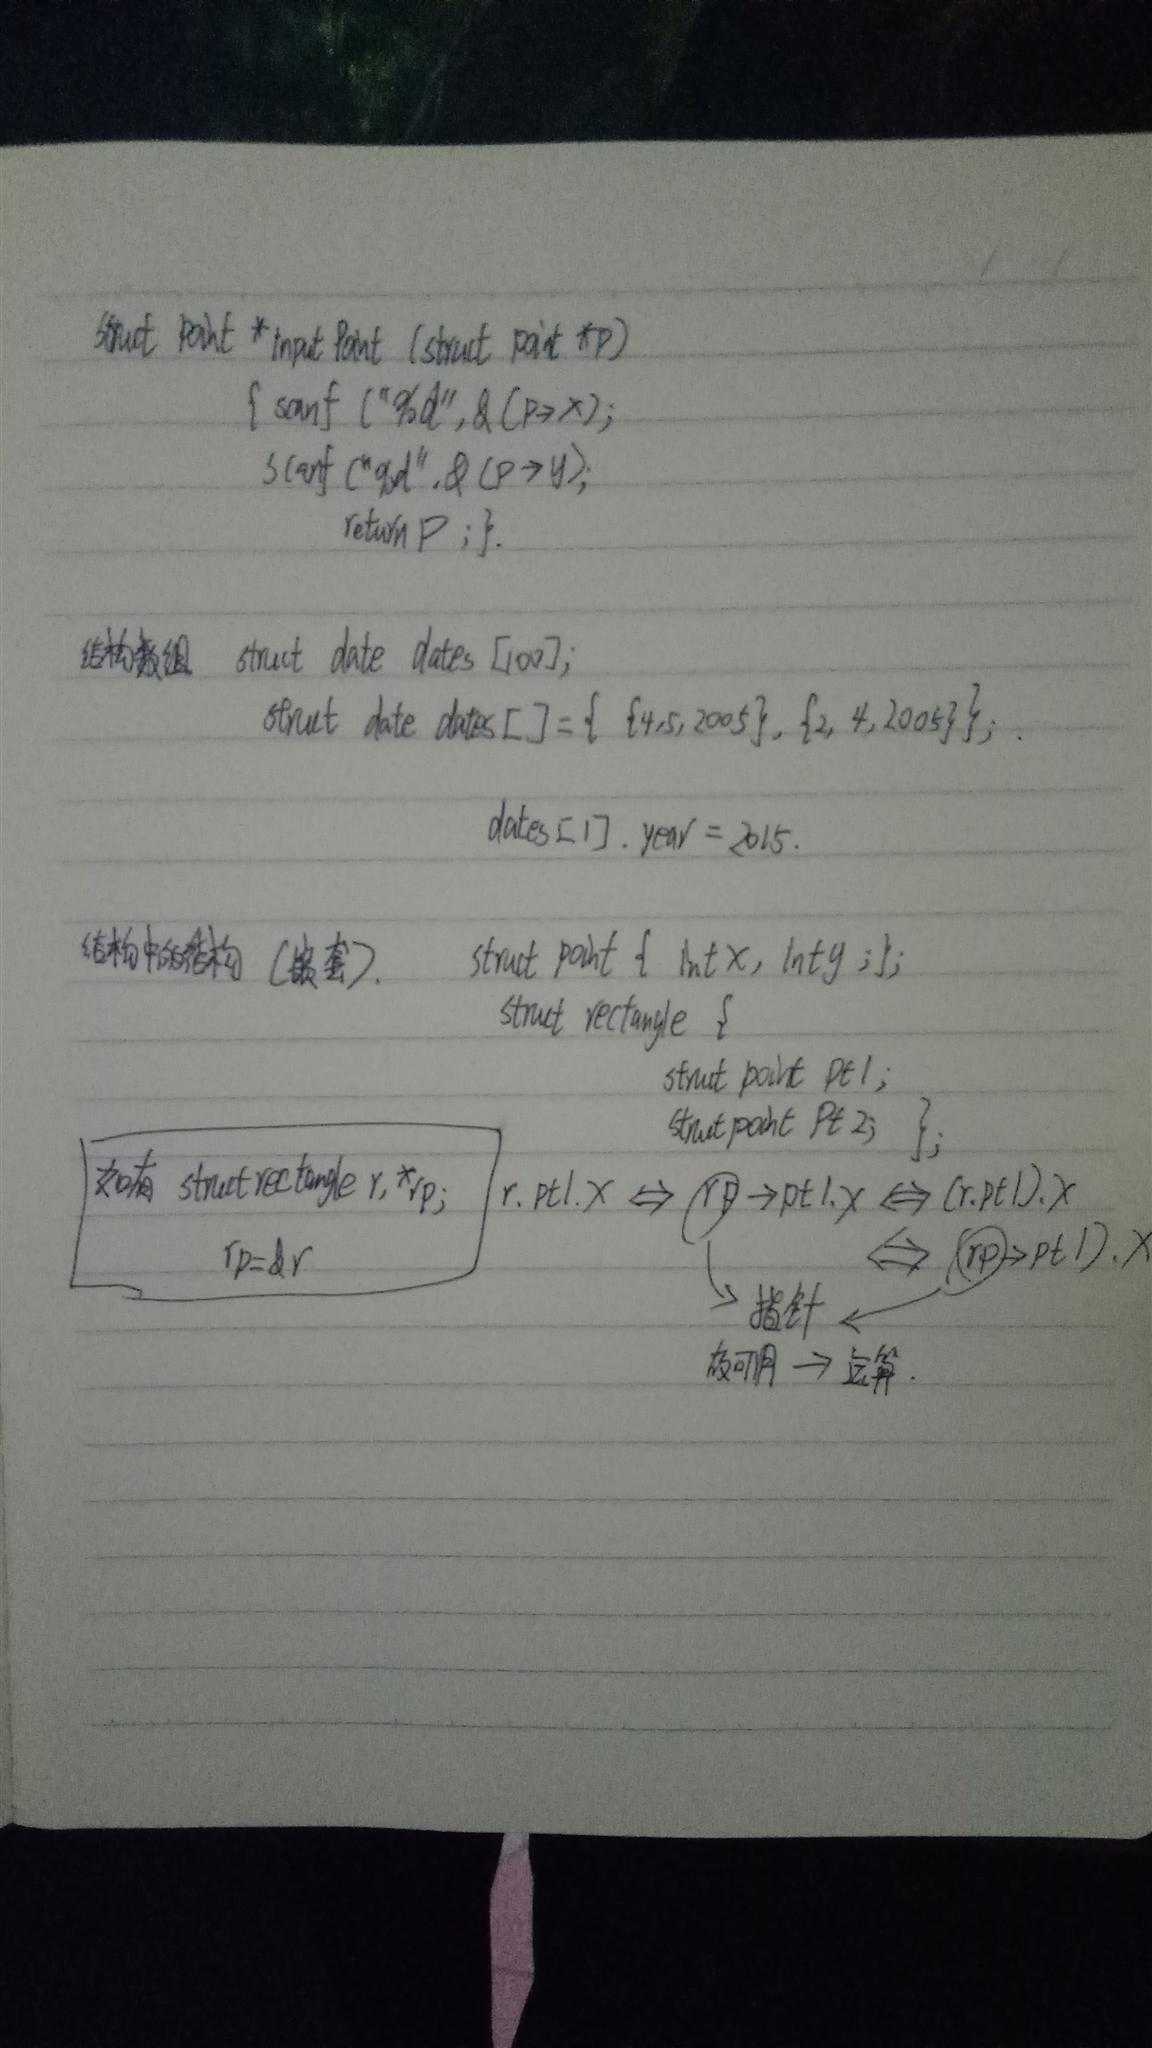 struct point *inputPoint (struct point *p)
{ scanf ("%d", & (p→x);
scanf ("%d", & (p→y);
return p ; }.
结构数组 struct date dates [100];
struct date dates [ ] = { {4,5,2005}, {2, 4, 2005} };
dates [1] . year = 2015.
结构中的结构 (嵌套). struct point { int x, int y ; };
struct rectangle {
struct point pt1;
struct point pt2; };
如有 struct rectangle r, *rp; r.pt1.x ⇔ rp→pt1.x ⇔ (r.pt1).x
rp=&r ⇔ (rp→pt1).x
指针
故可用 → 运算.